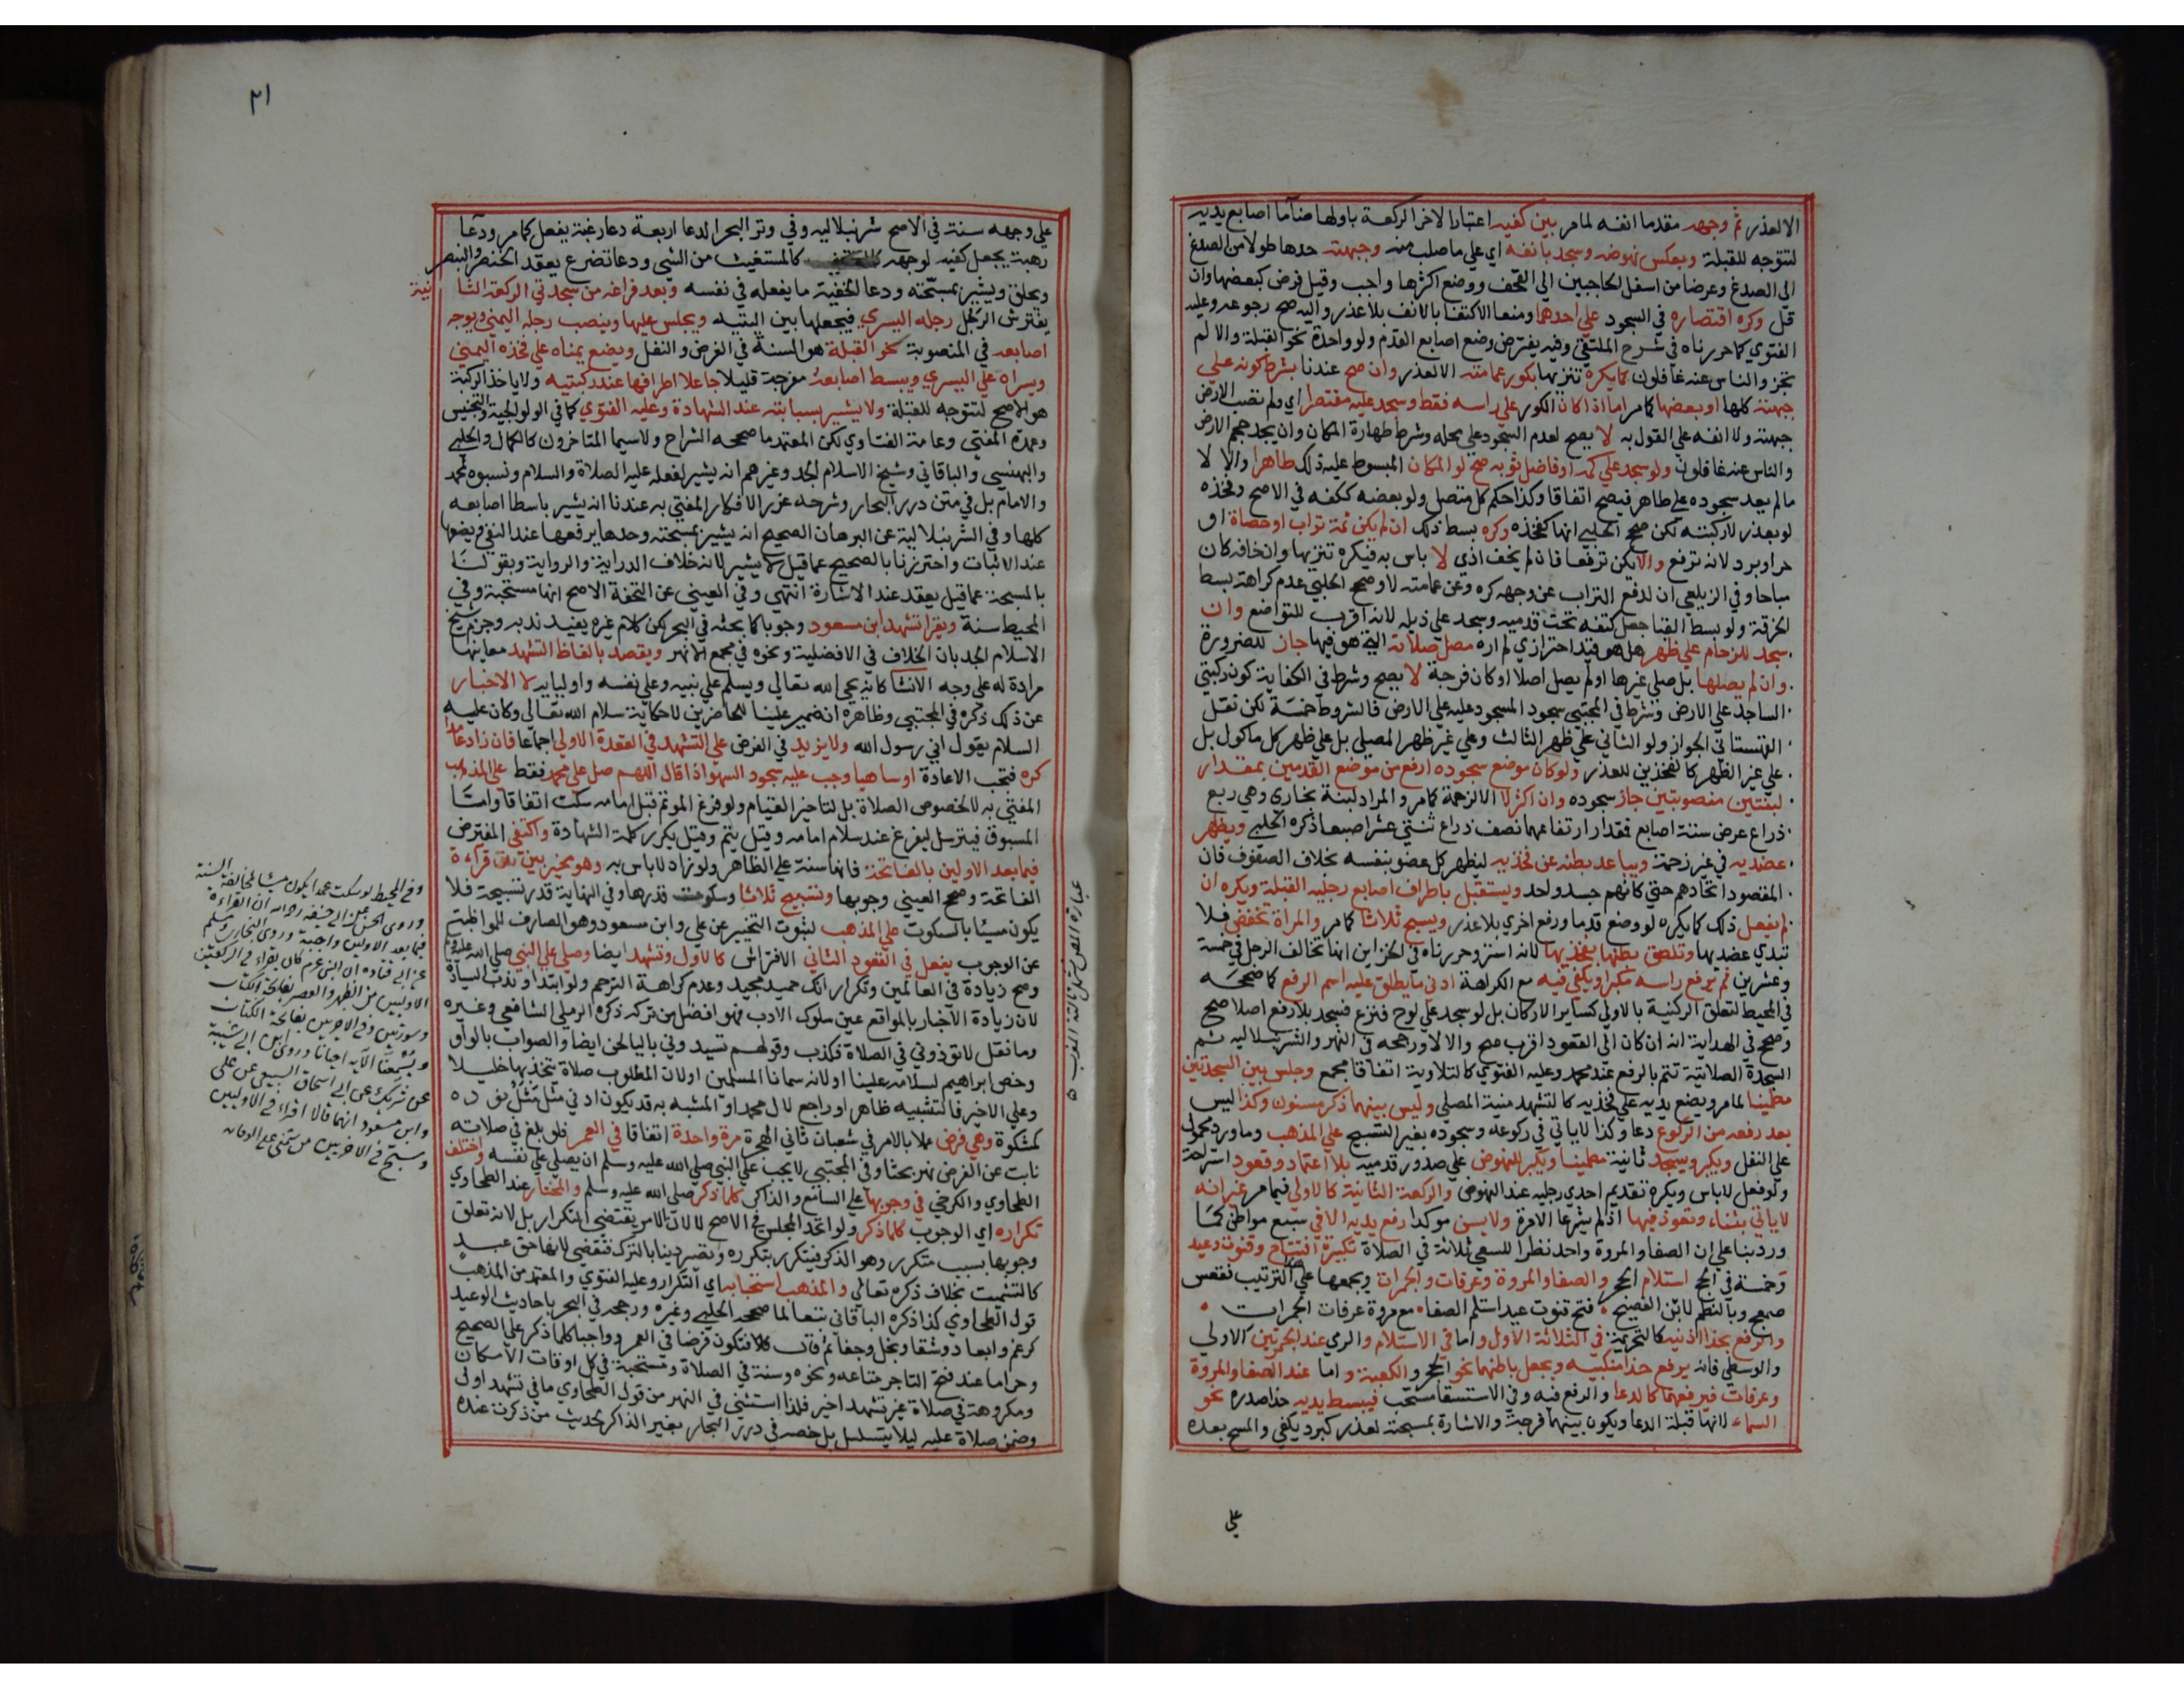 الا لعذر ثم وجهه مقدما انفه لما مر بين كفيه اعتبارا لاخر الركعة باولها ضاما اصابع يديه
لتتوجه للقبلة وبعكس نهوضه وسجد بانفه اي علي ما صلب منه وجبهته حدها طولا من الصدغ
الي الصدغ وعرضا من اسفل الحاجبين الي القحف ووضع اكثرها واجب وقيل فرض كبعضها وان
قل وكره اقتصاره في السجود علي احدهما ومنعا الاكتفا بالانف بلا عذر واليه صح رجوعه وعليه
الفتوي كما حررناه في شرح الملتقي وفيه يفترض وضع اصابع القدم ولو واحدة نحو القبلة والا لم
تجز والناس عنه غافلون كما يكره تنزيها بكور عمامته الا لعذر وان صح عندنا بشرط كونه علي
جبهته كلها او بعضها كما مر اما اذا كان الكور علي راسه فقط وسجد عليه مقتصرا اي ولم تصب الارض
جبهته ولا انفه علي القول به لا يصح لعدم السجود علي محله وشرط طهارة المكان وان يجد حجم الارض
والناس عنه غافلون ولو سجد علي كمه او فاضل ثوبه صح لو المكان المبسوط عليه ذلك طاهرا والا لا
ما لم يعد سجوده علي طاهر فيصح اتفاقا وكذا حكم كل متصل ولو بعضه ككفه في الاصح وفخذه
لو بعذر لا ركبته لكن صحح الحلبي انها كفخذه وكره بسط ذلك ان لم يكن ثمة تراب او حصاة او
حر او برد لانه ترفع والا يكن ترفعا فان لم يخف اذي لا باس به فيكره تنزيها وان خافه كان
مباحا وفي الزيلعي ان لدفع التراب عن وجهه كره وعن عمامته لا وصحح الحلبي عدم كراهة بسط
الخرقة ولو بسط القبا جعل كتفه تحت قدميه وسجد علي ذيله لانه اقرب للتواضع وان
سجد للزحام علي ظهر هل هو قيد احترازي لم اره مصل صلاته التي هو فيها جاز للضرورة
وان لم يصلها بل صلي غيرها او لم يصل اصلا او كان فرجة لا يصح وشرط في الكفاية كون ركبتي
الساجد علي الارض وشرط في المجتبي سجود المسجود عليه علي الارض فالشروط خمسة لكن نقل
القهستاني الجواز ولو الثاني علي ظهر الثالث وعلي غير ظهر المصلي بل علي ظهر كل ماكول بل
علي غير الظهر كالفخذين للعذر ولو كان موضع سجوده ارفع من موضع القدمين بمقدار
لبنتين منصوبتين جاز سجوده وان اكثر لا الا لزحمة كما مر والمراد لبنة بخاري وهي ربع
ذراع عرض ستة اصابع فمقدار ارتفاعهما نصف ذراع ثنتي عشر اصبعا ذكره الحلبي ويظهر
عضديه في غير زحمة ويباعد بطنه عن فخذيه ليظهر كل عضو بنفسه بخلاف الصفوف فان
المقصود اتحادهم حتي كانهم جسد واحد ويستقبل باطراف اصابع رجليه القبلة ويكره ان
لم يفعل ذلك كما يكره لو وضع قدما ورفع اخري بلا عذر ويسبح ثلاثا كما مر والمراة تخفض فلا
تبدي عضديها وتلصق بطنها بفخذيها لانه استر وحررناه في الخزاين انها تخالف الرجل في خمسة
وعشرين ثم يرفع راسه مكبرا ويكفي فيه مع الكراهة ادني ما يطلق عليه اسم الرفع كما صححه
في المحيط لتعلق الركنية بالادني كساير الاركان بل لو سجد علي لوح فنزع فسجد بلا رفع اصلا صح
وصحح في الهداية انه ان كان الي القعود اقرب صح والا لا ورجحه في النهر والشرنبلاليه ثم
السجدة الصلاتية تتم بالرفع عند محمد وعليه الفتوي كالتلاوية اتفاقا مجمع وجلس بين السجدتين
مطمينا لما مر ويضع يديه علي فخذيه كالتشهد منية المصلي وليس بينهما ذكر مسنون وكذا ليس
بعد رفعه من الركوع دعا وكذا لا ياتي في ركوعه وسجوده بغير التسبيح علي المذهب وما ورد محمول
علي النفل ويكبر ويسجد ثانية مطمينا ويكبر للنهوض علي صدور قدميه بلا اعتماد وقعود استراحة
ولو فعل لا باس ويكره تقديم احدي رجليه عند النهوض والركعة الثانية كالاولي فيما مر غير انه
لا ياتي بثناء وتعوذ فيها اذ لم يشرعا الا مرة ولا يسن موكدا رفع يديه الا في سبع مواطن كما
ورد بنا علي ان الصفا والمروة واحد نظرا للسعي ثلاثة في الصلاة تكبيرة افتتاح وقنوت وعيد
وخمسة في الحج استلام الحجر والصفا والمروة وعرفات والجمرات ويجمعها علي الترتيب فقعس
صمعج وبالنظم لابن الفصيح فتح قنوت عيد استلم الصفا مع مروة عرفات الجمرات
والرفع بحذا اذنيه كالتحريمة في الثلاثة الاول واما في الاستلام والرمي عند الجمرتين الاولي
والوسطي فانه يرفع حذا منكبيه ويجعل باطنهما نحو الحجر والكعبة واما عند الصفا والمروة
وعرفات فيرفعهما كالدعا والرفع فيه وفي الاستسقا مستحب فيبسط يديه حذا صدره نحو
السماء لانها قبلة الدعا ويكون بينهما فرجة والاشارة بمسبحة لعذر كبرد يكفي والمسح بعده
علي
٢١
علي وجهه سنة في الاصح شرنبلاليه وفي وتر البحر الدعا اربعة دعا رغبة يفعل كما مر ودعا
رهبة يجعل كفيه لوجهه كالمستغيث من الشي ودعا تضرع يعقد الخنصر والبنصر
ويحلق ويشير بمسبحته ودعا الخفية ما يفعله في نفسه وبعد فراغه من سجدتي الركعة الثا نية
يفترش الرجل رجله اليسري فيجعلها بين اليتيه ويجلس عليها وينصب رجله اليمني ويوجه
اصابعه في المنصوبة نحو القبلة هو السنة في الفرض والنفل ويضع يمناه علي فخذه اليمني
ويسراه علي اليسري ويبسط اصابعه مفرجة قليلا جاعلا اطرافها عند ركبتيه ولا ياخذ الركبة
هو الاصح لتتوجه للقبلة ولا يشير بسبابته عند الشهادة وعليه الفتوي كما في الولوالجية والتجنيس
وعمدة المفتي وعامة الفتاوي لكن المعتمد ما صححه الشراح ولاسيما المتاخرون كالكمال والحلبي
والبهنسي والباقاني وشيخ الاسلام الجد وغيرهم انه يشير لفعله عليه الصلاة والسلام ونسبوه لمحمد
والامام بل في متن درر البحار وشرحه غرر الافكار المفتي به عندنا انه يشير باسطا اصابعه
كلها وفي الشرنبلالية عن البرهان الصحيح انه يشير بمسبحته وحدها يرفعها عند النفي ويضعها
عند الاثبات واحترزنا بالصحيح عما قيل لا يشير لانه خلاف الدراية والرواية وبقولنا
بالمسبحة عما قيل يعقد عند الاشارة انتهي وفي العيني عن التحفة الاصح انها مستحبة وفي
المحيط سنة ويقرا تشهد ابن مسعود وجوبا كما بحثه في البحر لكن كلام غيره يفيد ندبه وجزم شيخ
الاسلام الجد بان الخلاف في الافضلية ونحوه في مجمع الانهر ويقصد بالفاظ التشهد معانيها
مرادة له علي وجه الانشا كانه يحي الله تعالي ويسلم علي نبيه وعلي نفسه واوليايه لا الاخبار
عن ذلك ذكره في المجتبي وظاهره ان ضمير علينا للحاضرين لا حكاية سلام الله تعالي وكان عليه
السلام يقول اني رسول الله ولا يزيد في الفرض علي التشهد في القعدة الاولي اجماعا فان زاد عامدا
كره فتجب الاعادة او ساهيا وجب عليه سجود السهو اذا قال اللهم صل علي محمد فقط علي المذهب
المفتي به لا لخصوص الصلاة بل لتاخير القيام ولو فرغ الموتم قبل امامه سكت اتفاقا واما
المسبوق فيترسل ليفرغ عند سلام امامه وقيل يتم وقيل يكرر كلمة الشهادة واكتفي المفترض
فيما بعد الاوليين بالفاتحة فانها سنة علي الظاهر ولو زاد لا باس به وهو مخير بين قراءة
الفاتحة وصحح العيني وجوبها وتسبيح ثلاثا وسكوت قدرها وفي النهاية قدر تسبيحة فلا
يكون مسيئا بالسكوت علي المذهب لثبوت التخيير عن علي وابن مسعود وهو الصارف للمواظبة
عن الوجوب يفعل في القعود الثاني الافتراش كالاول وتشهد ايضا وصلي علي النبي صلي الله عليه وسلم
وصح زيادة في العالمين وتكرار انك حميد مجيد وعدم كراهة الترحم ولو ابتدا وندب السيادة
لان زيادة الاخبار بالواقع عين سلوك الادب فهو افضل من تركه ذكره الرملي الشافعي وغيره
وما نقل لا تسودوني في الصلاة فكذب وقولهم تسيدوني بالياء لحن ايضا والصواب بالواو
وخص ابراهيم لسلامه علينا او لانه سمانا المسلمين او لان المطلوب صلاة يتخذ بها خليلا
وعلي الاخير فالتشبيه ظاهر او راجع لال محمد او المشبه به قد يكون ادني مثل مثل نوره
كمشكوة وهي فرض عملا بالامر في شعبان ثاني الهجرة مرة واحدة اتفاقا في العمر فلو بلغ في صلاته
نابت عن الفرض نهر بحثا وفي المجتبي لا يجب علي النبي صلي الله عليه وسلم ان يصلي علي نفسه واختلف
الطحاوي والكرخي في وجوبها علي السامع والذاكر كلما ذكر صلي الله عليه وسلم والمختار عند الطحاوي
تكراره اي الوجوب كلما ذكر ولو اتحد المجلس في الاصح لا لان الامر يقتضي التكرار بل لانه تعلق
وجوبها بسبب متكرر وهو الذكر فيتكرر بتكرره وتصير دينا بالترك فتقضي لانها حق عبد
كالتشميت بخلاف ذكره تعالي والمذهب استحبابه اي التكرار وعليه الفتوي والمعتمد من المذهب
قول الطحاوي كذا ذكره الباقاني تبعا لما صححه الحلبي وغيره ورجحه في البحر باحاديث الوعيد
كرغم وابعاد وشقا وبخل وجفا ثم قال فتكون فرضا في العمر وواجبا كلما ذكر علي الصحيح
وحراما عند فتح التاجر متاعه ونحوه وسنة في الصلاة ومستحبة في كل اوقات الامكان
ومكروهة في صلاة غير تشهد اخير فلذا استثني في النهر من قول الطحاوي ما في تشهد اولي
وضمن صلاة عليه ليلا يتسلسل بل خصه في درر البحار بغير الذاكر لحديث من ذكرت عنده
وفي المحيط لو سكت عمدا يكون مسيئا لمخالفة السنة
وروي الحسن عن ابي حنيفة رواية ان القراءة
فيما بعد الاوليين واجبة وروي البخاري ومسلم
عن ابي قتادة ان النبي كان يقراء في الركعتين
الاوليين من الظهر والعصر بفاتحة الكتاب
وسورتين وفي الاخريين بفاتحة الكتاب
ويسمعنا الآية احيانا وروي ابن ابي شيبة
عن شريك عن ابي اسحاق السبيعي عن علي
وابن مسعود انهما قالا اقراء في الاوليين
وسبح في الاخريين